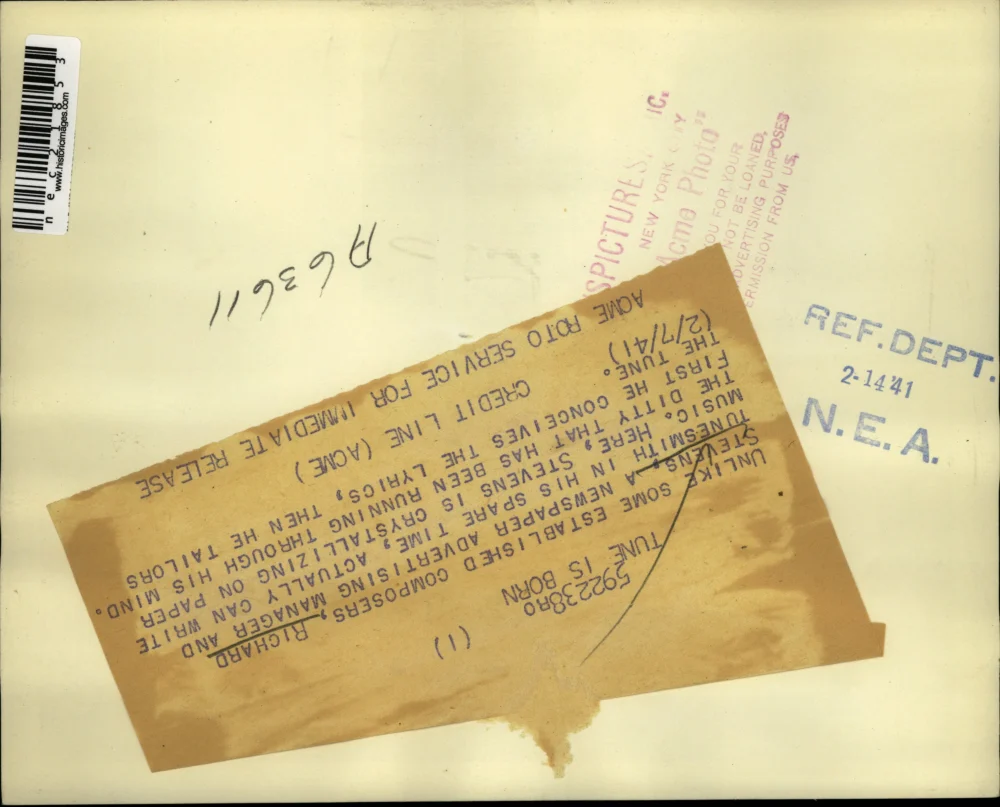 nec21853
www.historicimages.com
A63611
SPICTURES,
NEW YORK
Acme Photo"
YOU FOR YOUR
NOT BE LOANED,
ADVERTISING PURPOSES
ERMISSION FROM US.
REF. DEPT.
2-14 41
N. E. A.
(1)
592238RO
TUNE IS BORN
UNLIKE SOME ESTABLISHED COMPOSERS, RICHARD
STEVENS, A NEWSPAPER ADVERTISING MANAGER AND
TUNESMITH IN HIS SPARE TIME, ACTUALLY CAN WRITE
MUSIC. HERE, STEVENS IS CRYSTALLIZING ON PAPER
THE DITTY THAT HAS BEEN RUNNING THROUGH HIS MIND.
FIRST HE CONCEIVES THE LYRICS, THEN HE TAILORS
THE TUNE.
(2/7/41)
CREDIT LINE (ACME)
ACME ROTO SERVICE FOR IMMEDIATE RELEASE